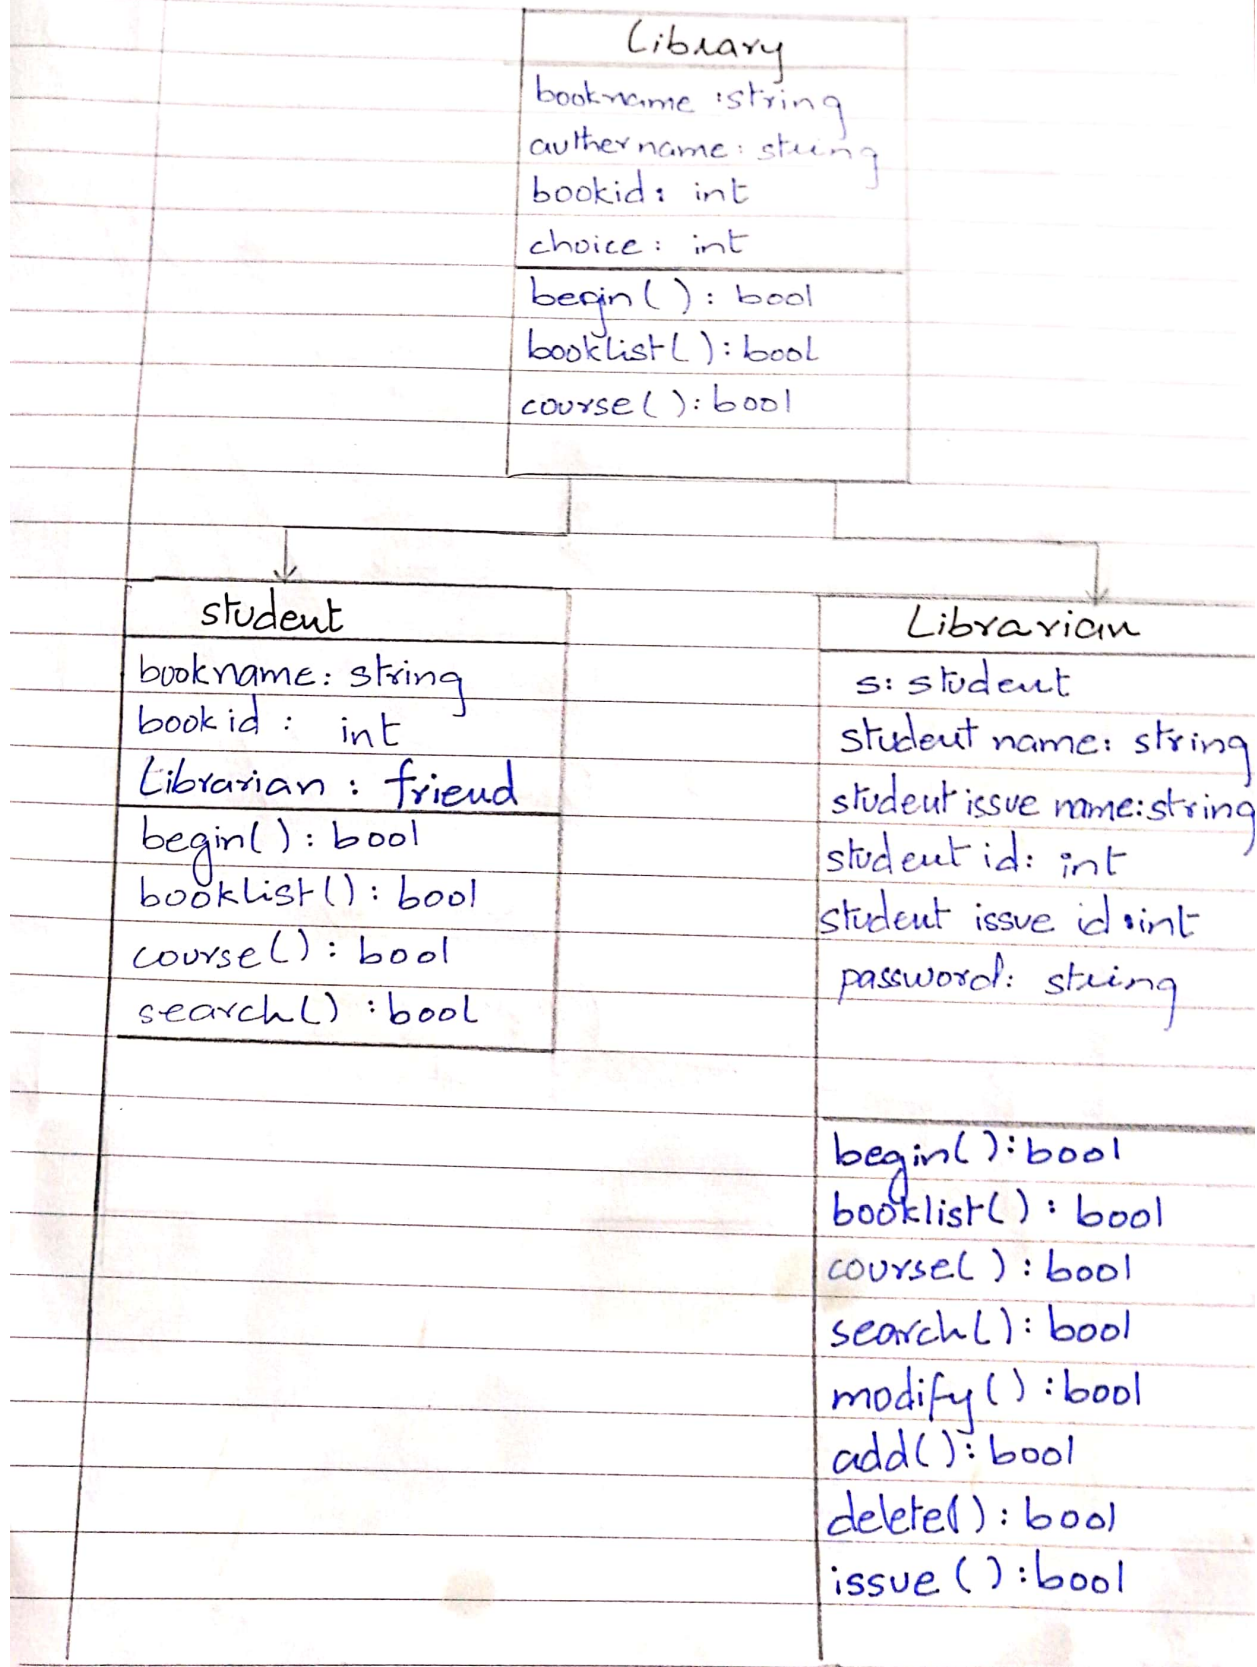 Library
bookname :string
authername: string
bookid: int
choice: int
begin(): bool
booklist(): bool
course(): bool
student
bookname: string
bookid : int
Librarian : friend
begin(): bool
booklist(): bool
course(): bool
search() : bool
Librarian
s: student
student name: string
student issue name: string
student id: int
student issue id: int
password: string
begin(): bool
booklist(): bool
course(): bool
search(): bool
modify(): bool
add(): bool
delete(): bool
issue(): bool